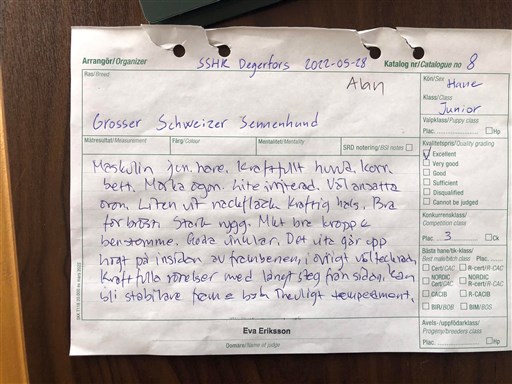 Arrangör/Organizer SSHK Degerfors 2022-05-28 Katalog nr/Catalogue no 8
Ras/Breed Alan Kön/Sex Hane
Klass/Class Junior
Grosser Schweizer Sennenhund
Valpklass/Puppy class
Plac. Hp
Mätresultat/Measurement Färg/Colour Mentalitet/Mentality SRD notering/BSI notes
Kvalitetspris/Quality grading
Excellent
Very good
Good
Sufficient
Disqualified
Cannot be judged
Maskulin jun. hane. Kraftfullt huvud. Korr.
bett. Mörka ögon. Lite irriterad. Väl ansatta
öron. Liten vit nackfläck. Kräftig hals. Bra
förbröst. Stark rygg. Mkt bra kropp &
benstomme. Goda vinklar. Det vita går upp
högt på insidan av frambenen, i övrigt väl tecknad.
Kraftfulla rörelser med långt steg från sidan, kan
bli stabilare fram & bak. Trevligt temperament.
Konkurrensklass/
Competition class
Plac. 3 Ck
Bästa hane/tik-klass/
Best male/bitch class Plac.
Cert/CAC R-cert/R-CAC
NORDIC Cert/CAC NORDIC R-cert/R-CAC
CACIB R-CACIB
BIR/BOB BIM/BOS
Avels-/uppfödarklass/
Progeny/breeders class
Plac. Hp
Eva Eriksson
Domare/Name of judge